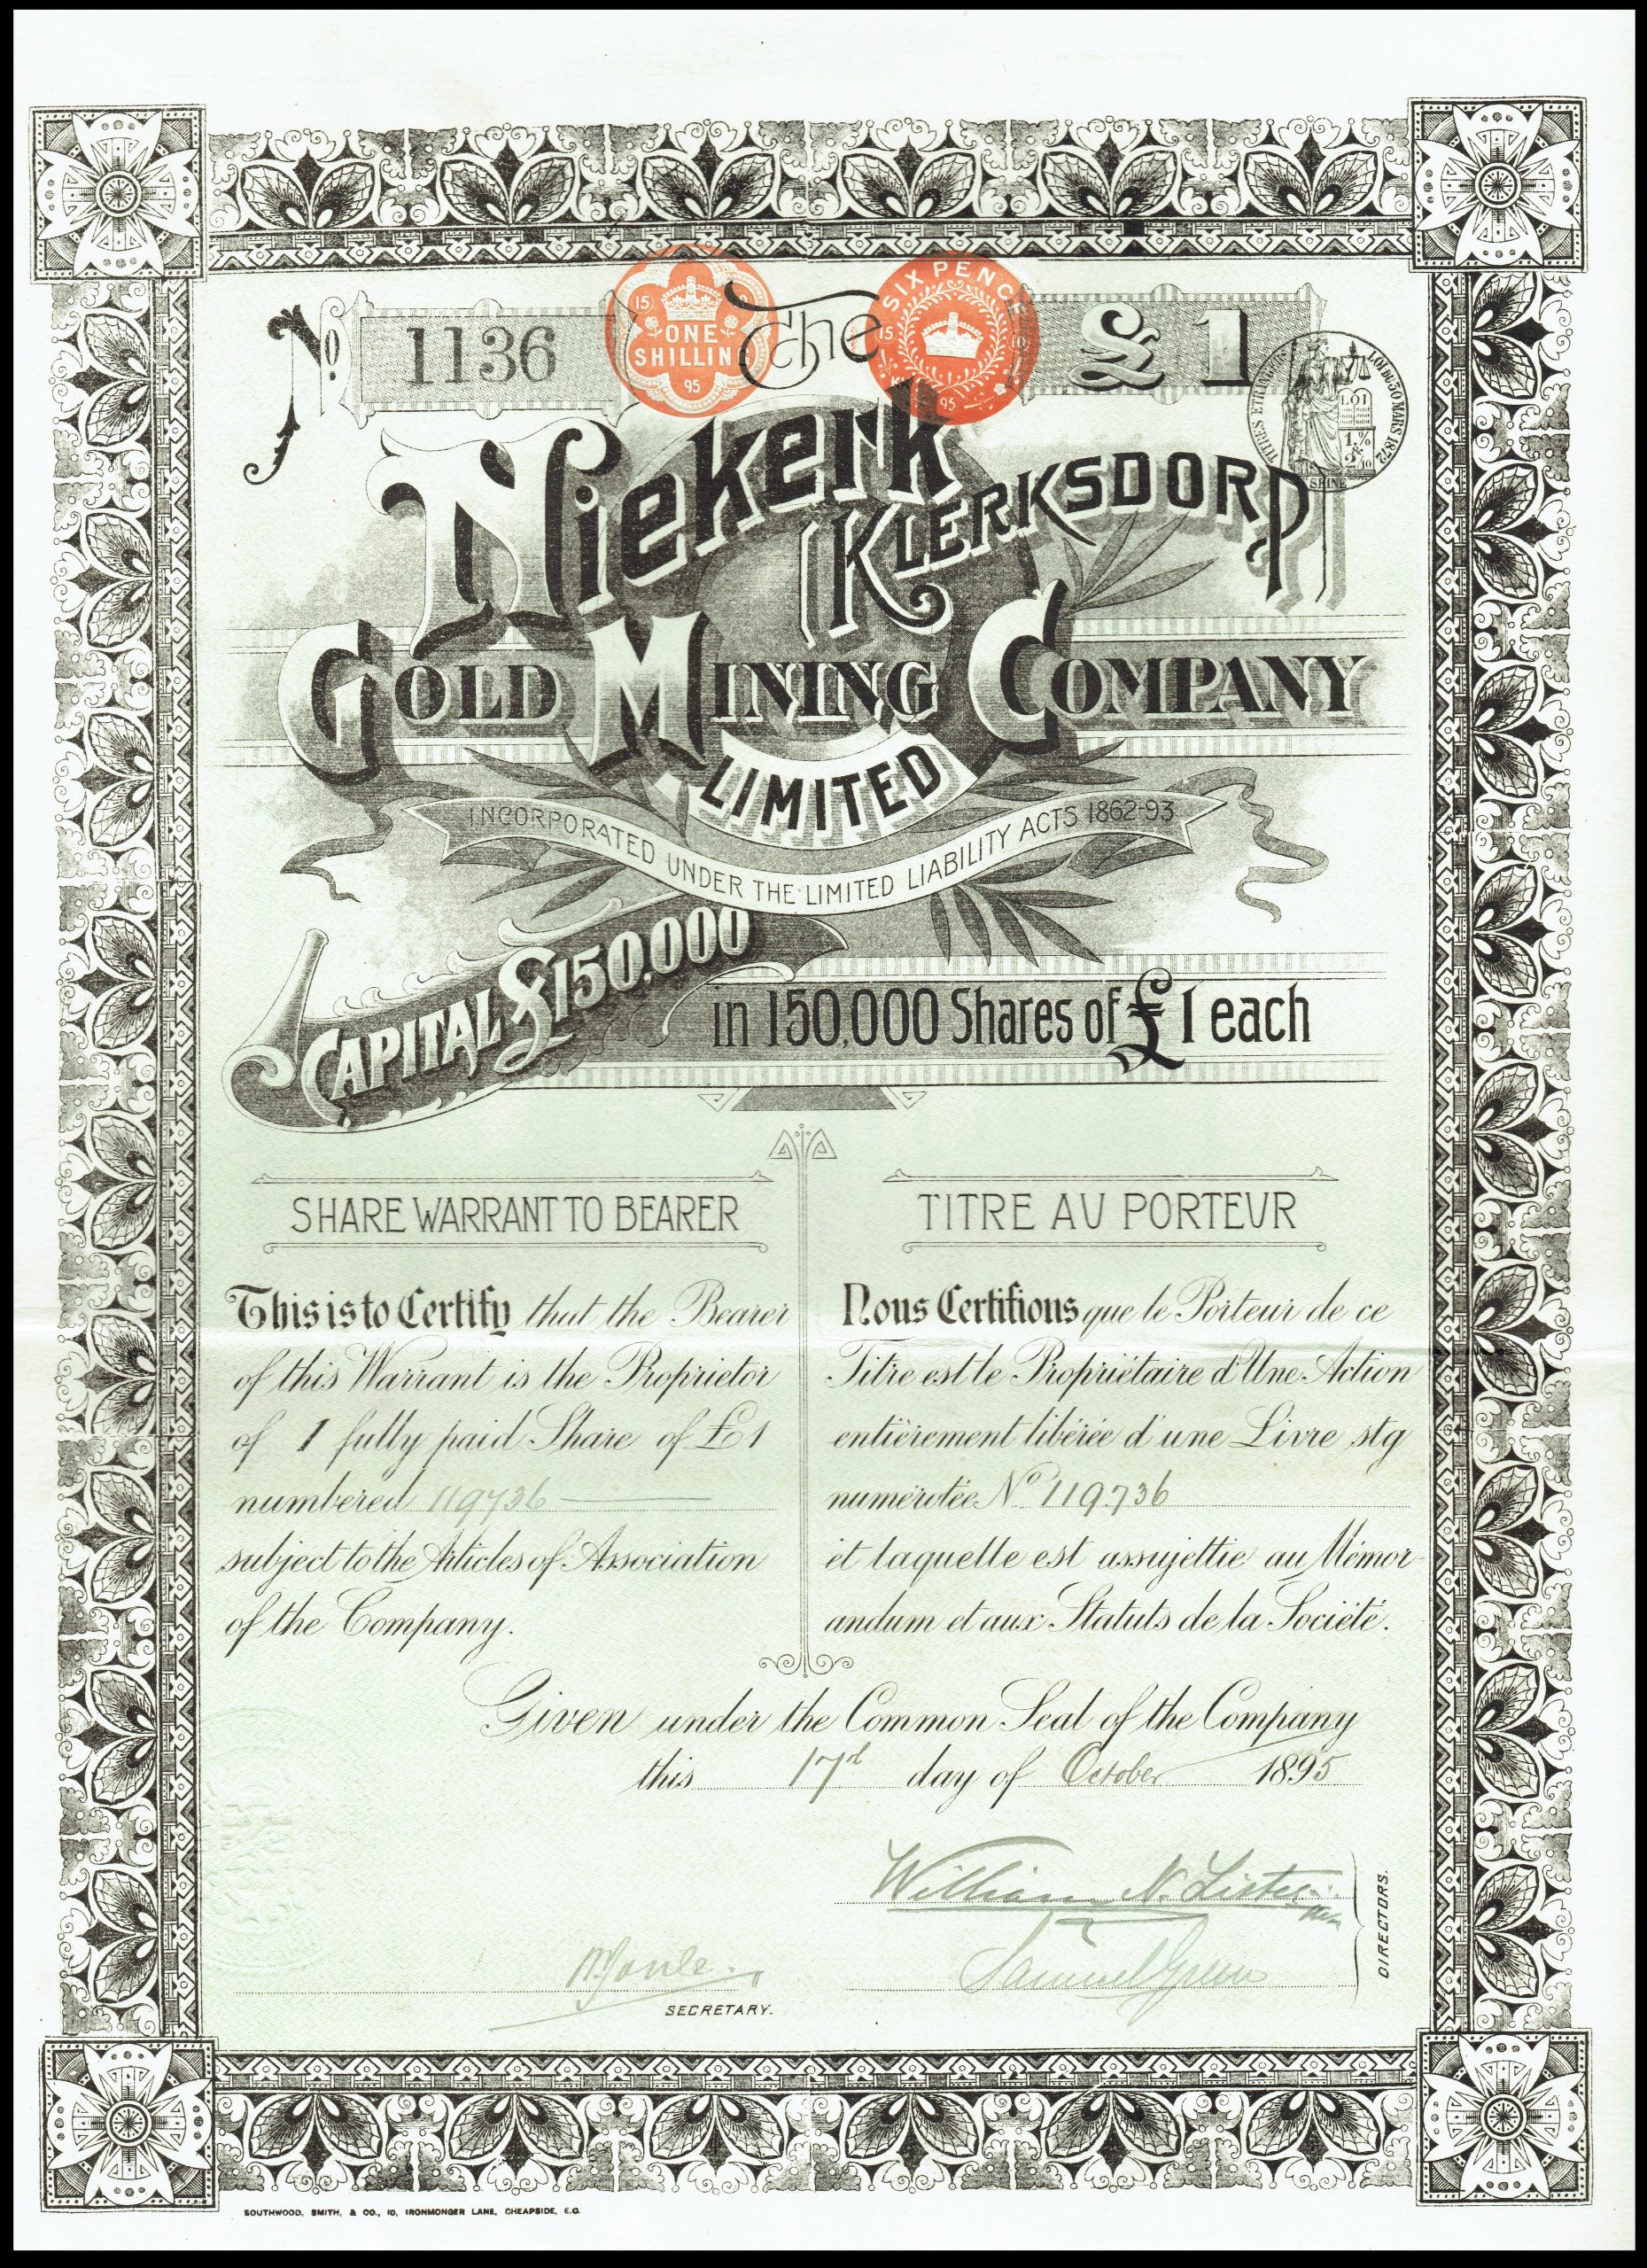 No. 1136
15 10
ONE
SHILLING
95
The
SIX PENCE
15 10
95
£1
TITRES ETRANGERS
LOI DU 30 MARS 1872
LOI
1.%
&
2/10
SEINE
Niekerk
KLERKSDORP
GOLD MINING COMPANY
LIMITED
INCORPORATED UNDER THE LIMITED LIABILITY ACTS 1862-93
CAPITAL £150.000
in 150,000 Shares of £1 each
SHARE WARRANT TO BEARER
This is to Certify that the Bearer
of this Warrant is the Proprietor
of 1 fully paid Share of £1
numbered 119736
subject to the Articles of Association
of the Company.
TITRE AU PORTEUR
Nous Certifions que le Porteur de ce
Titre est le Propriétaire d'Une Action
entièrement libérée d'une Livre stg
numérotée No 119736
et laquelle est assujettie au Mémor-
andum et aux Statuts de la Société.
Given under the Common Seal of the Company
this 17d day of October 1895
William N. Lister
Samuel Green
DIRECTORS.
SECRETARY.
SOUTHWOOD, SMITH, & CO., 10, IRONMONGER LANE, CHEAPSIDE, E.C.